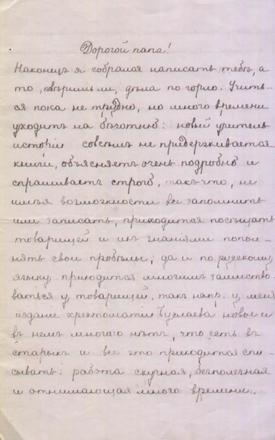 Дорогой папа!
Наконецъ я собрался написать тебѣ, а
то, вѣришь ли, дѣла по горло. Учить-
ся пока не трудно, но много времени
уходитъ на бѣготню: новый учитель
исторіи совсѣмъ не придерживается
книги, объясняетъ очень подробно и
спрашиваетъ строго, такъ что, не
имѣя возможности все запомнить
или записать, приходится посѣщать
товарищей и ихъ знаніями попол-
нять свои пробѣлы, да и по русскому
языку приходится многимъ заимство-
ваться у товарищей, такъ какъ у меня
изданіе хрестоматіи Буслаева новое и
въ немъ многаго нѣтъ, что есть въ
старыхъ и все это приходится спи-
сывать: работа скучная, безполезная
и отнимающая много времени.